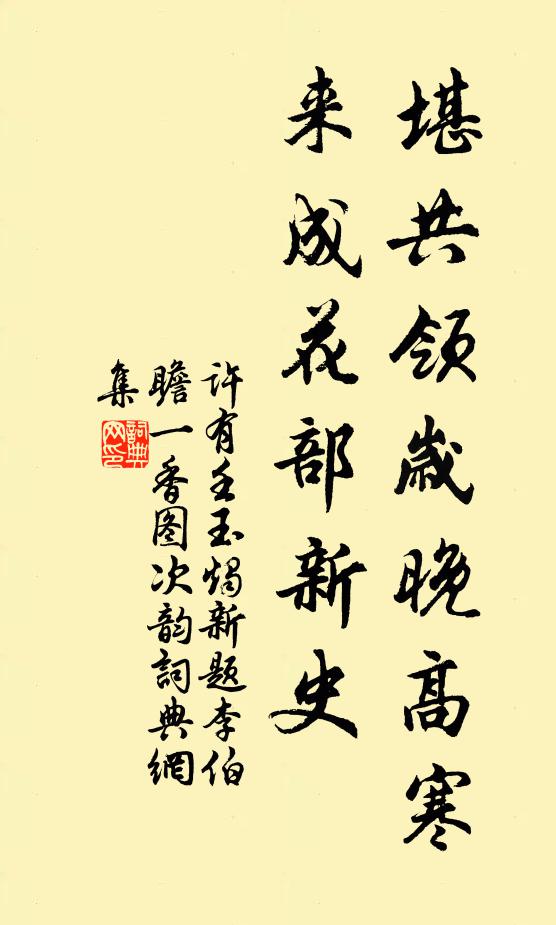 堪共领岁晚高寒
来成花部新史
许有壬玉烛新题李伯
瞻一香图次韵词典网
集
词典网印